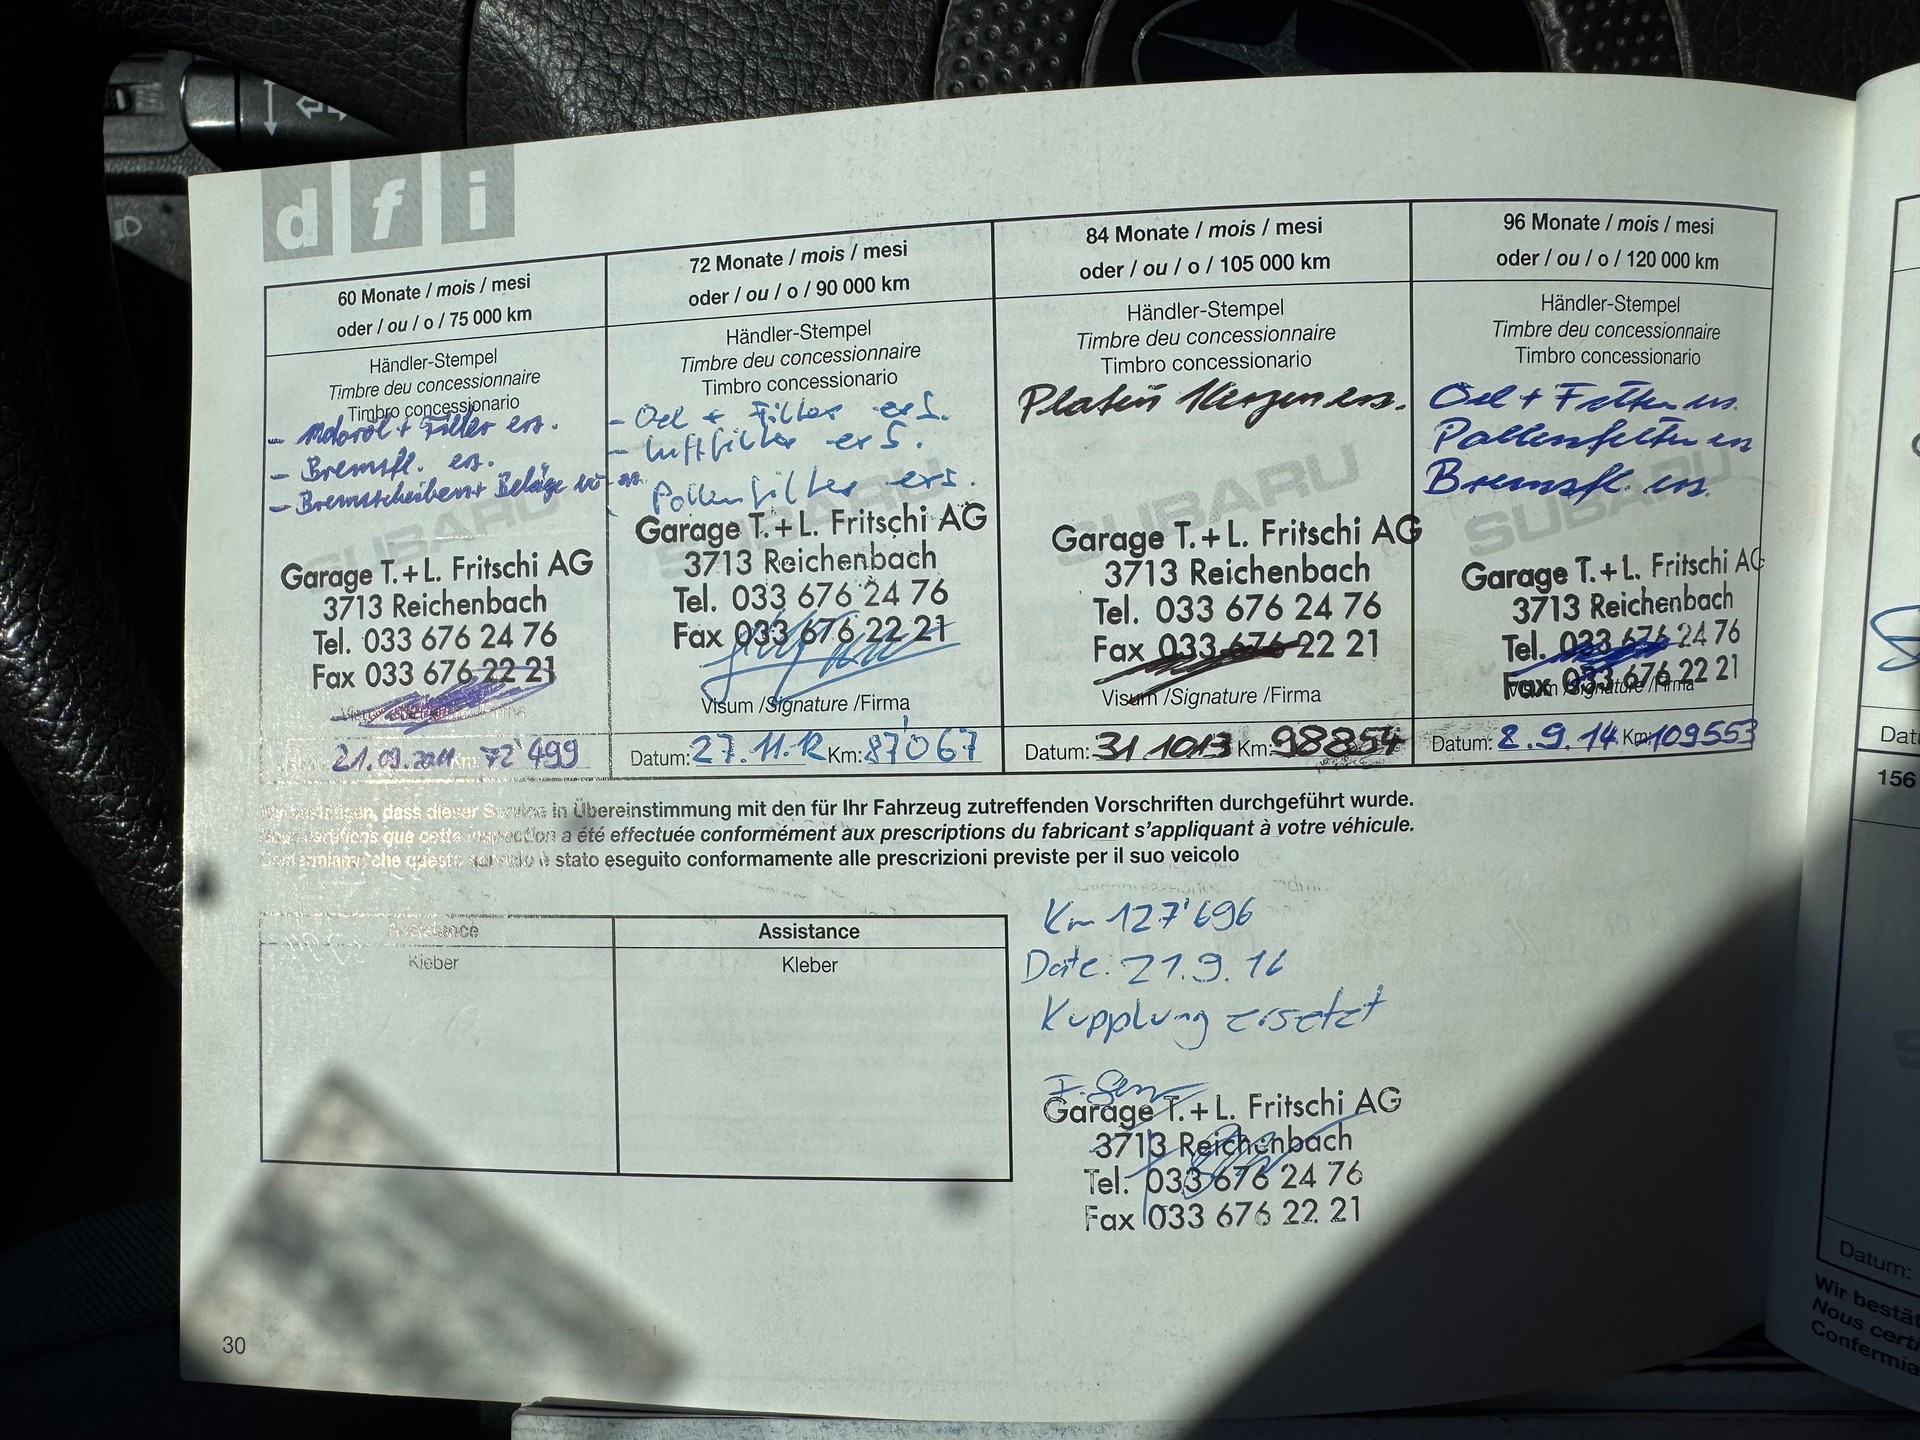 d f i
60 Monate / mois / mesi
oder / ou / o / 75 000 km
Händler-Stempel
Timbre deu concessionnaire
Timbro concessionario
- Motoröl + Filter ers.
- Bremsfl. ers.
- Bremsscheiben + Beläge
SUBARU
Garage T. + L. Fritschi AG
3713 Reichenbach
Tel. 033 676 24 76
Fax 033 676 22 21
21.09.2011 Km: 72'499
72 Monate / mois / mesi
oder / ou / o / 90 000 km
Händler-Stempel
Timbre deu concessionnaire
Timbro concessionario
- Oel + Filter ers.
- Luftfilter ers.
Pollenfilter ers.
SUBARU
Garage T. + L. Fritschi AG
3713 Reichenbach
Tel. 033 676 24 76
Fax 033 676 22 21
Visum /Signature /Firma
Datum: 27.11.12 Km: 87'067
84 Monate / mois / mesi
oder / ou / o / 105 000 km
Händler-Stempel
Timbre deu concessionnaire
Timbro concessionario
Platin Kerzen ers.
SUBARU
Garage T. + L. Fritschi AG
3713 Reichenbach
Tel. 033 676 24 76
Fax 033 676 22 21
Visum /Signature /Firma
Datum: 31 10 13 Km: 98854
96 Monate / mois / mesi
oder / ou / o / 120 000 km
Händler-Stempel
Timbre deu concessionnaire
Timbro concessionario
Oel + Filter ers.
Pollenfilter ers
Bremsfl. ers.
SUBARU
Garage T. + L. Fritschi AG
3713 Reichenbach
Tel. 033 676 24 76
Fax 033 676 22 21
Visum /Signature /Firma
Datum: 8.9.14 Km: 109553
Wir bestätigen, dass dieser Service in Übereinstimmung mit den für Ihr Fahrzeug zutreffenden Vorschriften durchgeführt wurde.
Nous certifions que cette inspection a été effectuée conformément aux prescriptions du fabricant s'appliquant à votre véhicule.
Confermiamo che questo servizio è stato eseguito conformamente alle prescrizioni previste per il suo veicolo
Assistance
Kleber
Assistance
Kleber
Km 127'696
Date: 21.9.16
Kupplung ersetzt
Garage T. + L. Fritschi AG
3713 Reichenbach
Tel. 033 676 24 76
Fax 033 676 22 21
30
Dat
156
Datum:
Wir bestät
Nous certi
Confermia